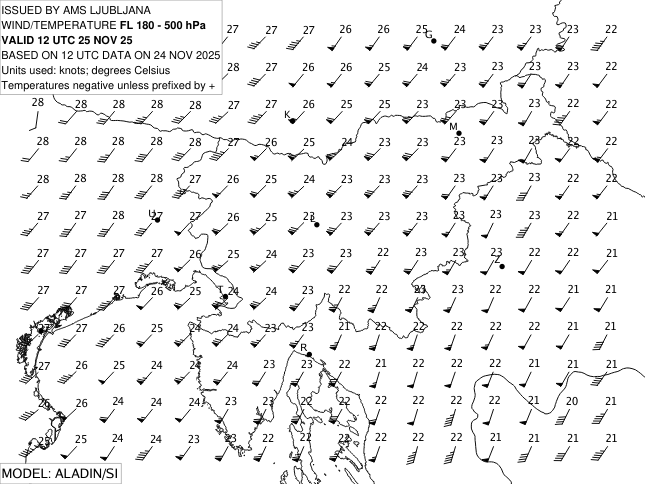 ISSUED BY AMS LJUBLJANA
WIND/TEMPERATURE FL 180 - 500 hPa
VALID 12 UTC 25 NOV 25
BASED ON 12 UTC DATA ON 24 NOV 2025
Units used: knots; degrees Celsius
Temperatures negative unless prefixed by +
27 27 27 26 26 25 24 23 23 23 22
G
28 27 26 26 25 24 23 23 23 23 22
28 28 28 28 28 27 27 26 25 25 23 23 23 23 22 22
K
M
28 28 28 28 28 27 26 25 24 23 23 23 23 23 22 22
28 28 28 28 27 27 26 25 24 23 23 23 23 23 22 22
27 27 28 27 27 26 25 23 23 23 23 23 23 23 22 21
U
L
27 27 27 27 26 25 24 23 23 22 23 23 23 22 22 21
Z
27 27 27 26 25 24 24 23 22 22 23 23 22 22 21 21
T
27 27 26 25 24 24 23 23 21 22 22 22 22 22 21 21
R
27 26 25 24 24 24 23 23 22 21 22 22 22 21 21 21
26 26 24 24 24 23 23 22 22 22 22 22 22 21 20 21
25 25 24 24 23 23 22 22 22 22 22 22 21 21 21 21
MODEL: ALADIN/SI